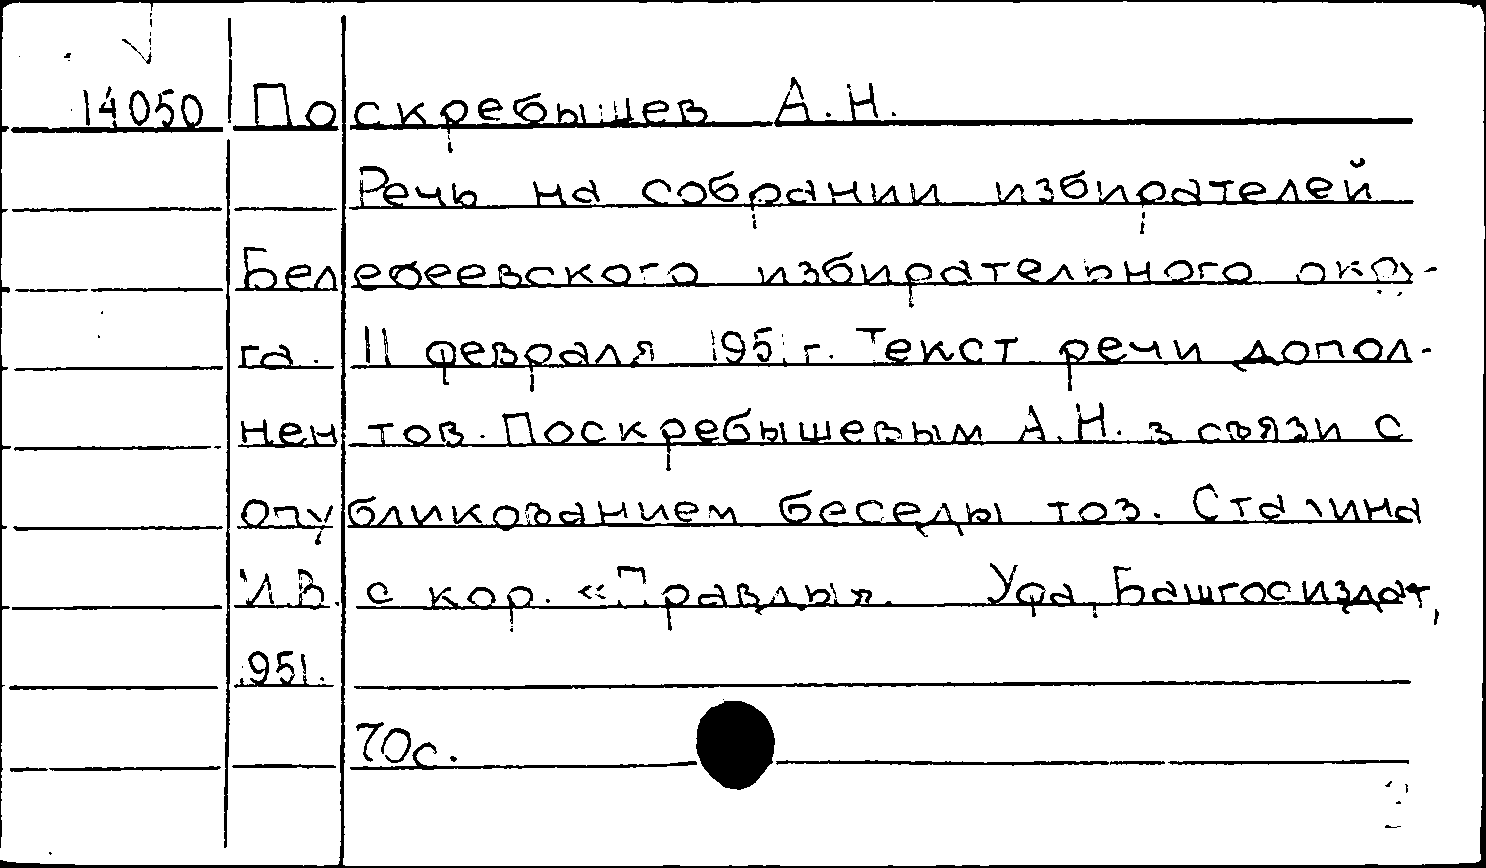 14050 Поскребышев А.Н.
Речь на собрании избирателей
Белебеевского избирательного окру-
га. 11 февраля 1951 г. Текст речи допол-
нен тов. Поскребышевым А.Н. в связи с
опубликованием беседы тов. Сталина
И.В. с кор. «Правды». Уфа, Башгосиздат,
1951.
70с.